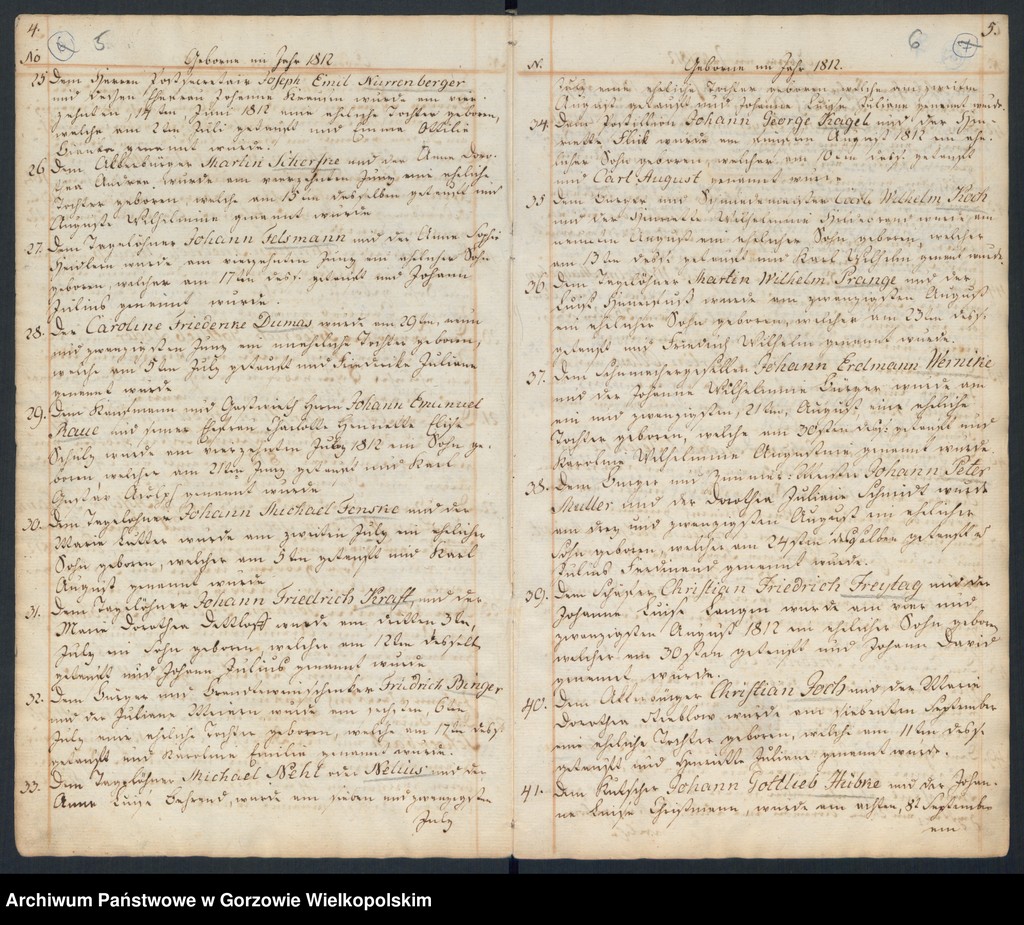 4.
5
No
Geborne im Jahr 1812
25 Dem Herren Postsecretair Joseph Emil Nürrenberger
und dessen Eheren Johanne wurde am vier-
zehnten, 14ten Juni 1812 eine eheliche Tochter geboren,
welche am 2ten Juli getauft und Emma Ottilie
genannt wurde.
26 Dem Ackerbürger Martin Scherfke und der Anne Doro-
thea wurde am vierzehnten Juny eine eheliche
Tochter geboren, welche am 15ten desselben getauft und
Auguste Wilhelmine genannt wurde
27. Dem Tagelöhner Johann Felsmann und der Anne Sophie
wurde am vierzehnten Juny ein ehelicher Sohn
geboren, welcher am 17ten dess. getauft und Johann
Julius genennt wurde.
28. Der Caroline Friederike Dumas, wurde am 29ten, neun
und zwanzigsten Juny eine uneheliche Tochter geboren,
welche am 5ten July getauft und Friederike Juliane
genennt wurde
29. Dem Kaufmann und Gastwirth Herrn Johann Emanuel
Raue und seiner Ehefrau Charlotte Henriette Elise
Schulz wurde am vierzehnten Juny 1812 ein Sohn ge-
boren, welcher am 21ten Juny getauft und Karl
Gustav Adolph genannt wurde
30. Dem Tagelöhner Johann Michael Fenske und der
Marie wurde am zweiten July ein ehelicher
Sohn geboren, welcher am 5ten getauft und Karl
August genannt wurde
31. Dem Tagelöhner Johann Friedrich Kraft, und der
Marie Dorothea Dettloff wurde am dritten 3ten,
July ein Sohn geboren, welcher am 12ten desselb.
getauft und Johann Julius genannt wurde
32. Dem Bürger und Brandtweinschenker Friedrich Binger
und der Juliane wurde am sechsten 6ten
July eine eheliche Tochter geboren, welche am 17ten dess.
getauft und Karoline Emilie genannt wurde.
33. Dem Tagelöhner Michael Nehl oder Nelius und der
Anne Luise Behrend, wurde am sieben und zwanzigsten
July
6
5.
N.
Geborne im Jahr 1812.
July eine eheliche Tochter geboren, welche am zweiten
August getauft und Johanne Luise Juliane genennt wurde.
34. Dem Postillion Johann George Kagel und der Hen-
riette Flick wurde am August 1812 ein ehe-
licher Sohn geboren, welcher am 10ten dess. getauft
und Carl August genannt wurde
35 Dem Bürger und Schmiedemeister Carl Wilhelm Koch
und der Henriette Wilhelmine Hildebrand wurde am
neunten August ein ehelicher Sohn geboren, welcher
am 13ten dess. getauft und Karl Wilhelm genennt wurde.
36. Dem Tagelöhner Martin Wilhelm Prange und der
Luise wurde am zwanzigsten August
ein ehelicher Sohn geboren, welcher am 23ten dess.
getauft und Friedrich Wilhelm genennt wurde.
37. Dem Schumachergesellen Johann Erdmann Wernike
und der Johanne Wilhelmine wurde am
ein und zwanzigsten, 21ten, August eine eheliche
Tochter geboren, welche am 30sten dess. getauft und
Karoline Wilhelmine Augustine genennt wurde.
38. Dem Bürger und Johann Peter
Muller und der Dorothea Juliane Schmidt wurde
am drey und zwanzigsten August ein ehelicher
Sohn geboren, welcher am 24sten desselben getauft
Julius Ferdinand genennt wurde.
39. Dem Schäfer Christian Friedrich Freytag und der
Johanne Luise wurde am vier und
zwanzigsten August 1812 ein ehelicher Sohn geboren
welcher am 30sten getauft und Johann David
genennt wurde.
40. Dem Ackerbürger Christian Joch und der Marie
Dorothea wurde am siebenten September
eine eheliche Tochter geboren, welche am 11ten dess.
getauft und Henriette Juliane genennt wurde.
41. Dem Kutscher Johann Gottlieb Hübne und der Johan-
ne Luise wurde am achten, 8t September
ein
Archiwum Państwowe w Gorzowie Wielkopolskim